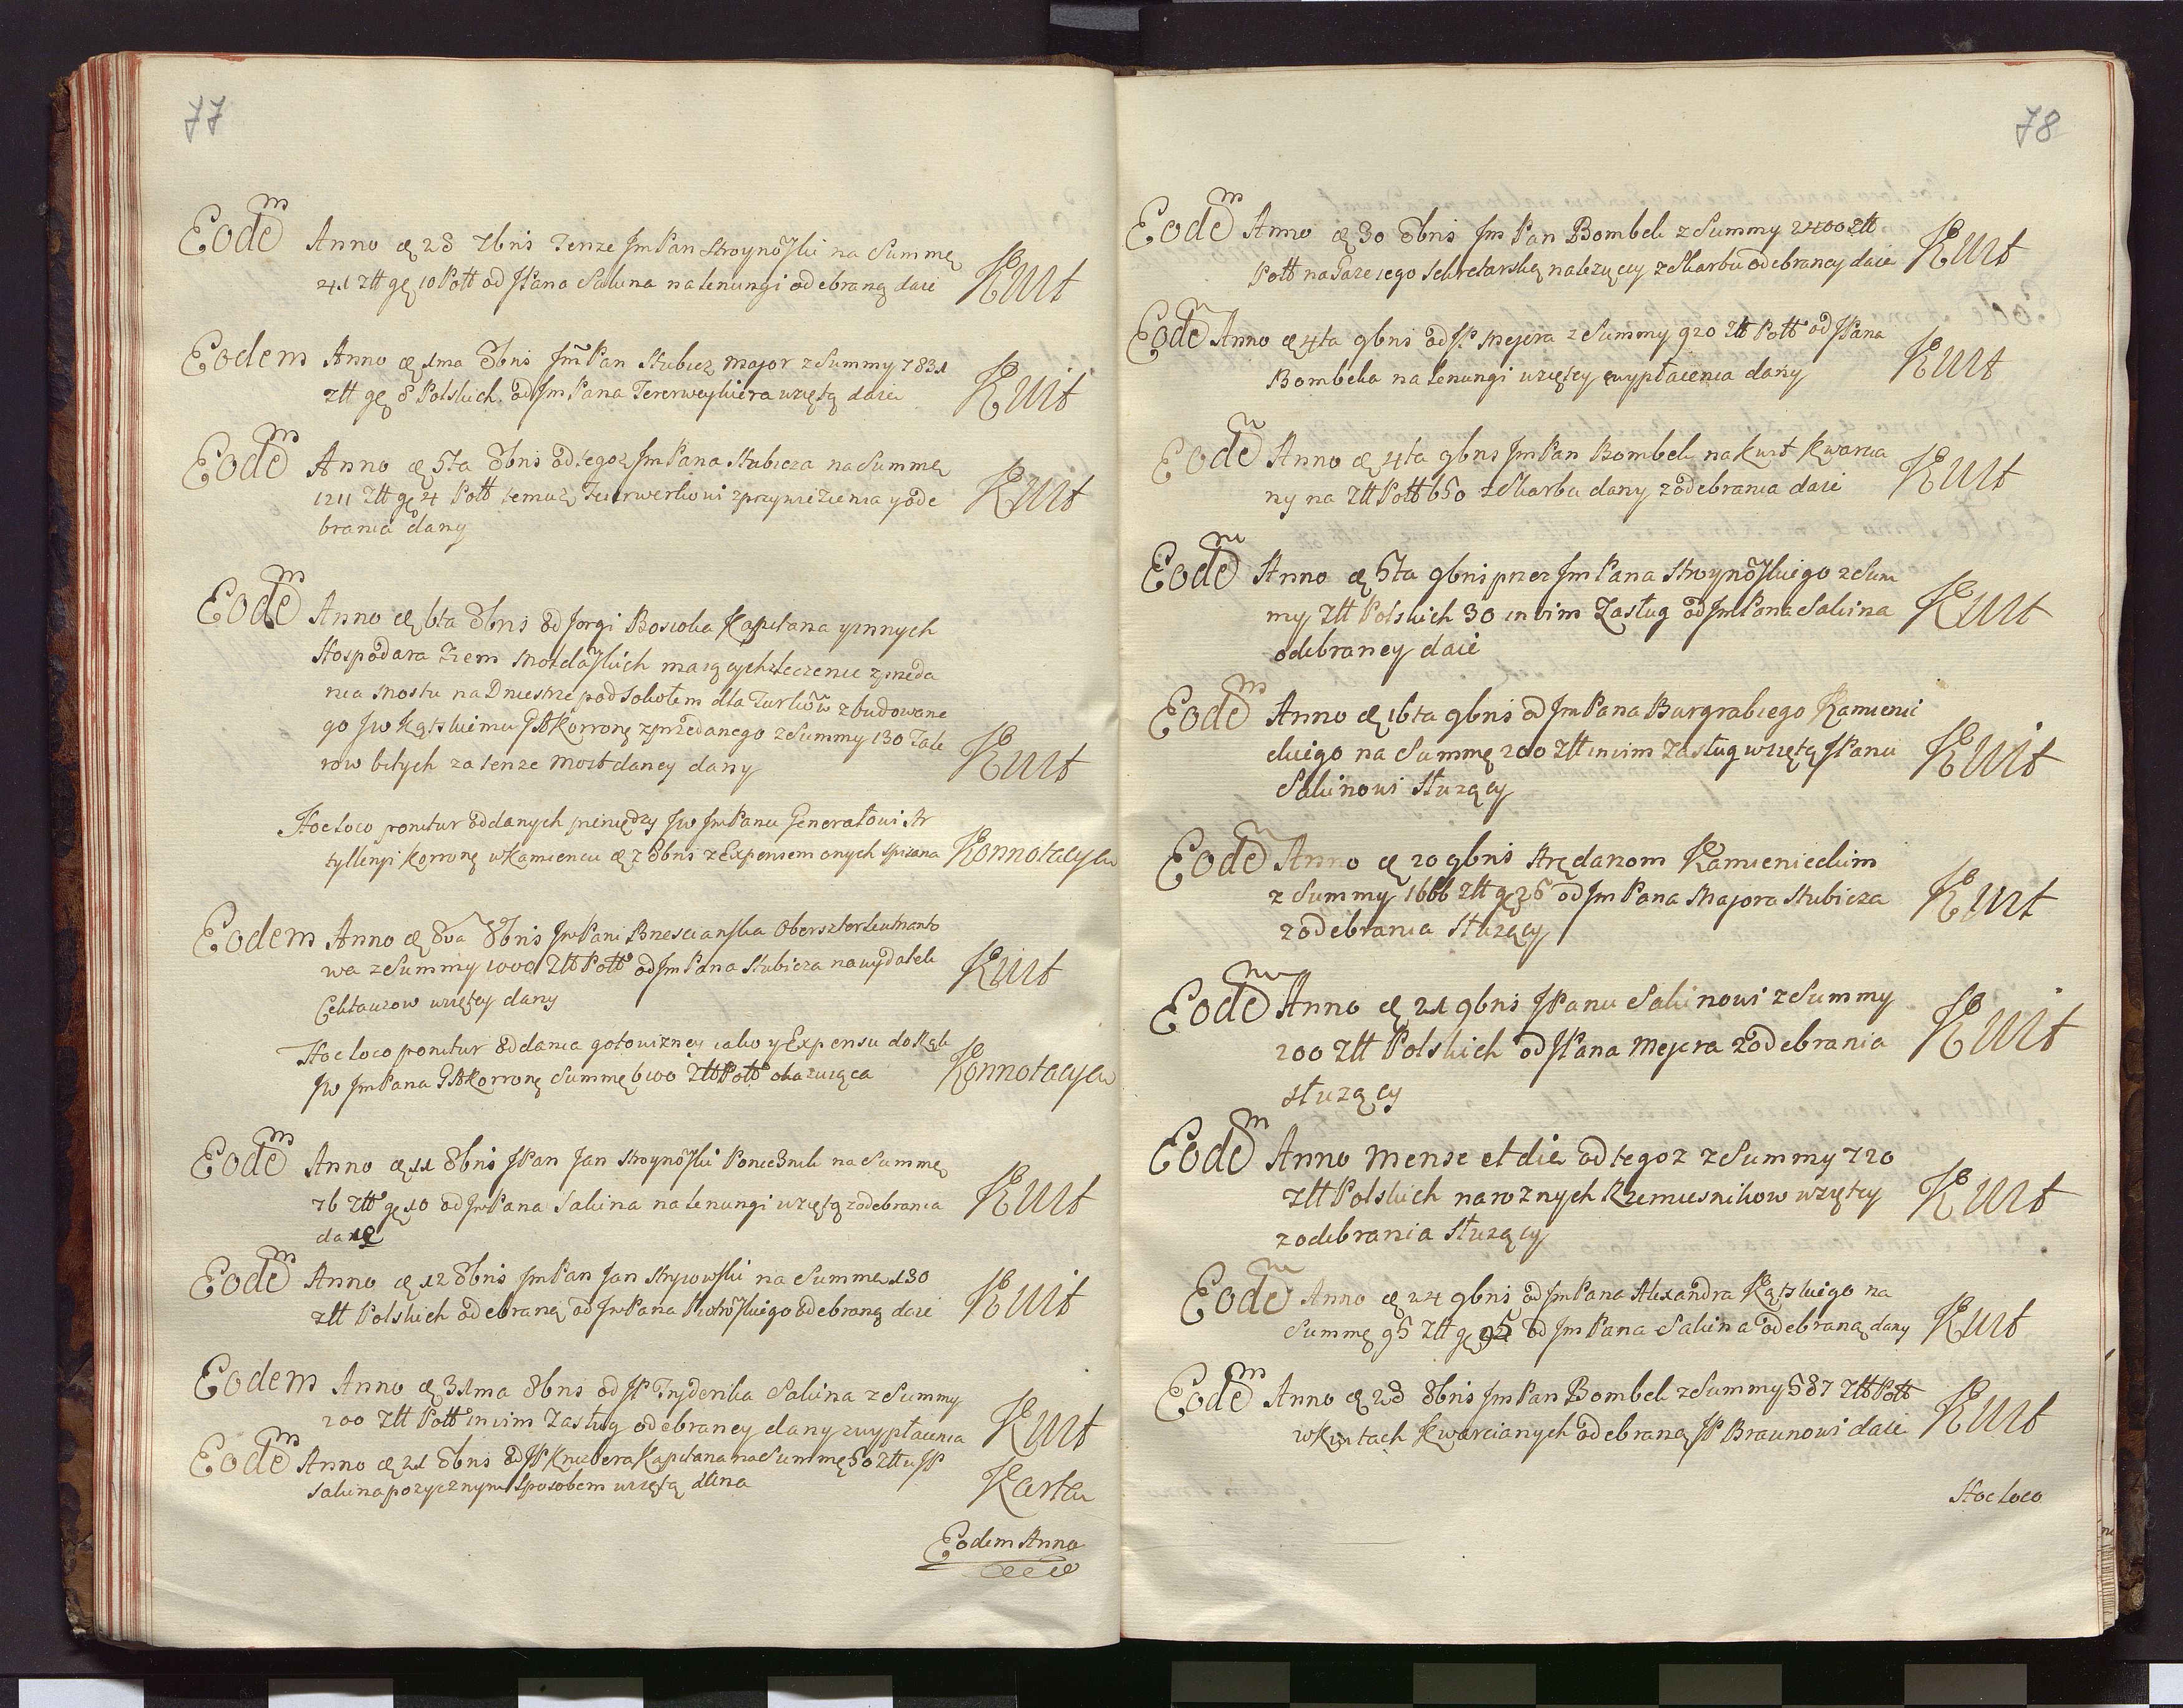 77
Eodem Anno & 28 7bris Tenze Jm Pan Stroynowski na Summę
41 Ztt gr 10 Poll od JPana Saluna na lenungi odebraną daie Kwit
Eodem Anno & 1ma 8bris Jm Pan Stubicz Major z Summy 7831
Ztt gr 8 Polskich od Jm Pana wziętą daie Kwit
Eodem Anno & 5ta 8bris od tegoz Jm Pana Stubicza na Summę
1211 Ztt gr 4 Poll temuz z przyniesienia y ode
brania dany Kwit
Eodem Anno & 6ta 8bris od Jorgi Kapitana y innych
Hospodara Ziem Mołdawskich maiących zleczenie z przeda
nia Mostu na Dniestrze pod Sokołem dla Turkow zbudowane
go Jw Kątskiemu GA Korronę zprzedanego z Summy 130 Tale
row bitych za tenze Most daney dany Kwit
Hoc loco ponitur oddanych pieniędzy Jw Jm Panu Generałowi Ar
tylleryi Korronę w Kamiencu & 7 8bris z Expensem onych spisana Konnotacya
Eodem Anno & 8va 8bris Jm Pani Brzescianska Obersztorleutnanto
wa z Summy 1000 Ztt Poll od Jm Pana Stubicza na wydatek
Cekhauzow wziętey dany Kwit
Hoc loco ponitur oddania gotowizney iako y Expensu do Rąk
Jw Jm Pana GA Korronę Summę 6100 Ztt Poll okazuiąca Konnotacya
Eodem Anno & 11 8bris JPan Jan Stroynowski na Summę
76 Ztt gr 10 od Jm Pana Saluina na lenungi wziętą z odebrania
dany Kwit
Eodem Anno & 12 8bris Jm Pan Jan Stryiowski na Summę 130
Ztt Polskich odebraną od Jm Pana odebraną daie Kwit
Eodem Anno & 31ma 8bris od JP Fryderika Saluina z Summy
200 Ztt Poll in vim Zasług odebraney dany z wypłacenia Kwit
Eodem Anno & 21 8bris od JP Kapitana na Summę 50 Ztt u JP
Saluina pozycznym sposobem wziętą dana Karta
Eodem Anno
78
Eodem Anno & 30 8bris Jm Pan Bombek z Summy 2400 Ztt
Poll na Gaże iego Sekretarską nalezycey z Skarbu odebraney daie Kwit
Eodem Anno & 4ta 9bris od JP Mejera z Summy 920 Ztt Poll od JPana
Bombeka na lenungi wziętey z wypłacenia dany Kwit
Eodem Anno & 4ta 9bris Jm Pan Bombek na Kwit Kwarcia
ny na Ztt Poll 650 z Skarbu dany z odebrania daie Kwit
Eodem Anno & 5ta 9bris przez Jm Pana Stroynowskiego z Sum
my Ztt Polskich 30 in vim Zasług od Jm Pana Saluina
odebraney daie Kwit
Eodem Anno & 16ta 9bris od Jm Pana Burgrabiego Kamienic
ckiego na Summę 200 Ztt in vim Zasług wziętą JPanu
Saluinowi służący Kwit
Eodem Anno & 20 9bris Arędarzom Kamienieckim
z Summy 1666 Ztt gr 26 od Jm Pana Majora Stubicza
z odebrania służący Kwit
Eodem Anno & 21 9bris JPanu Saluinowi z Summy
200 Ztt Polskich od JPana Mejera z odebrania
służący Kwit
Eodem Anno Mense et die od tegoz z Summy 720
Ztt Polskich na roznych Rzemiesnikow wziętey
z odebrania służący Kwit
Eodem Anno & 24 9bris od Jm Pana Alexandra Kątskiego na
Summę 95 Ztt gr od Jm Pana Saluina odebraną dany Kwit
Eodem Anno & 28 8bris Jm Pan Bombek z Summy 587 Ztt Poll
w Kwitach Kwarcianych odebraną JP Braunowi daie Kwit
Hoc loco